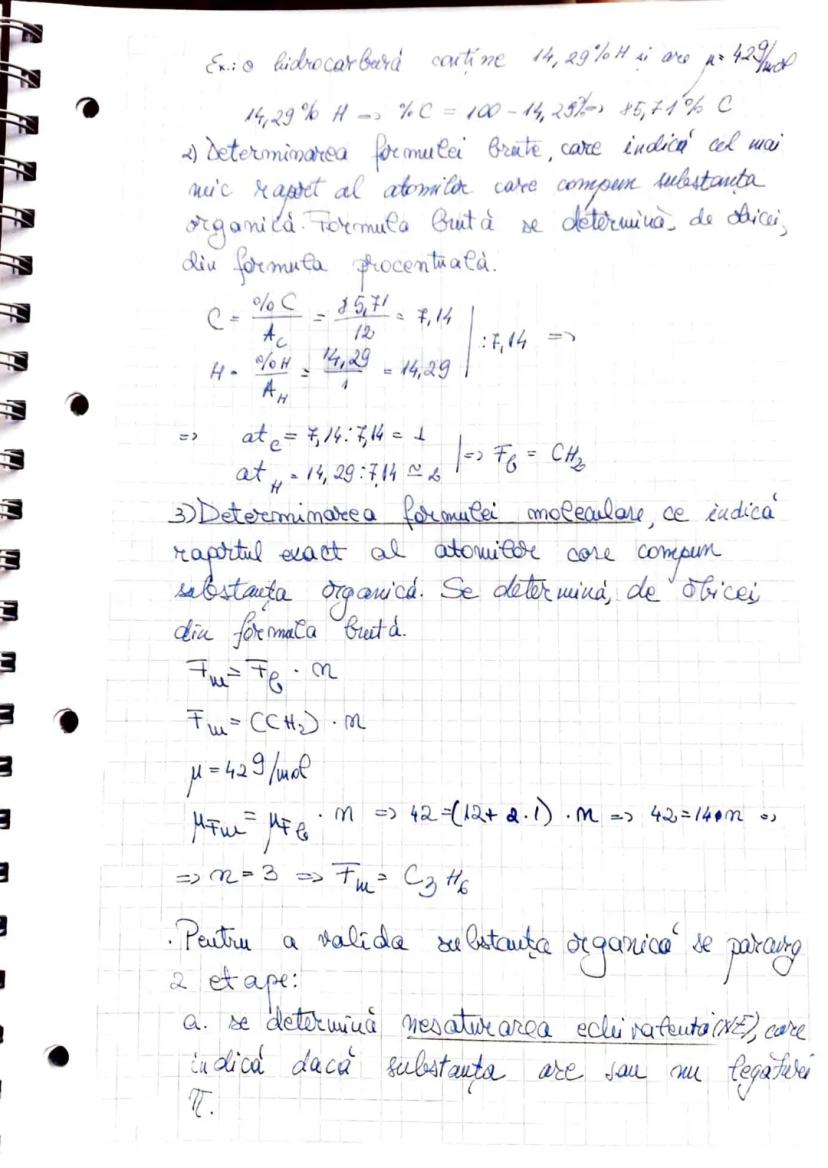 Ex.: o hidrocarbură conține 14,29% H și are μ = 42g/mol
14,29% H => %C = 100 - 14,29% => 85,71% C
2) Determinarea formulei brute, care indică cel mai
mic raport al atomilor care compun substanța
organică. Formula brută se determină, de obicei,
din formula procentuală.
C = %C/A_C = 85,71/12 = 7,14 | :7,14 =>
H = %H/A_H = 14,29/1 = 14,29
=> at_C = 7,14:7,14 = 1 | => F_b = CH₂
at_H = 14,29:7,14 ≃ 2
3) Determinarea formulei moleculare, ce indică
raportul exact al atomilor care compun
substanța organică. Se determină, de obicei,
din formula brută.
F_m = F_b · n
F_m = (CH₂) · n
μ = 42g/mol
μ_Fm = μ_Fb · n => 42 = (12 + 2·1) · n => 42 = 14·n =>
=> n = 3 => F_m = C₃H₆
. Pentru a valida substanța organică se parcurg
2 etape:
a. se determină nesaturarea echivalentă (NE), care
indică dacă substanța are sau nu legături
π.